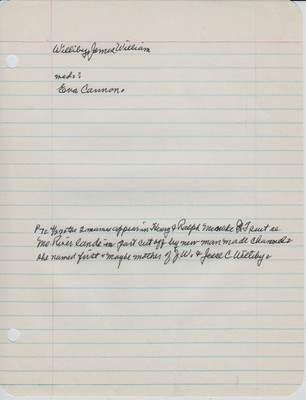 Williby, James William
med:
Eva Cannon.
names appear in Henry & Ralph QT suit re
Mo River lands in part cut off by new man made Channel.
she named first & maybe mother of J.W. & Jesse C Williby.